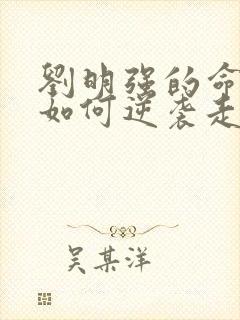 劉明强的命
如何逆袭走
吴某洋